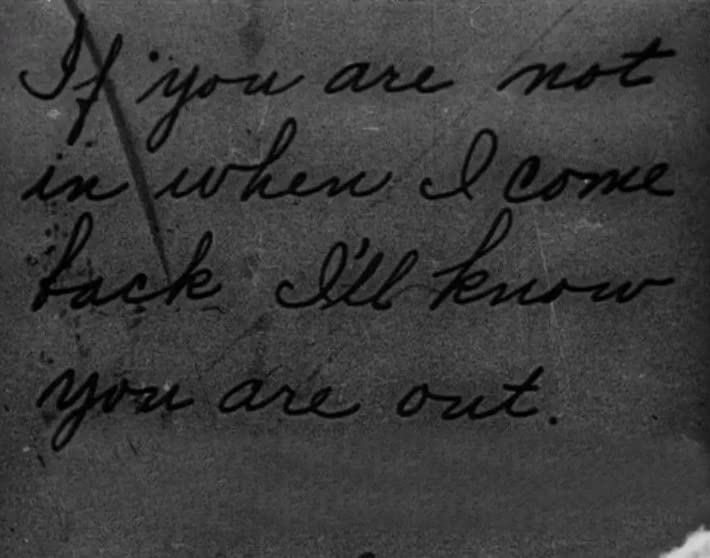 If you are not
in when I come
back I'll know
you are out.